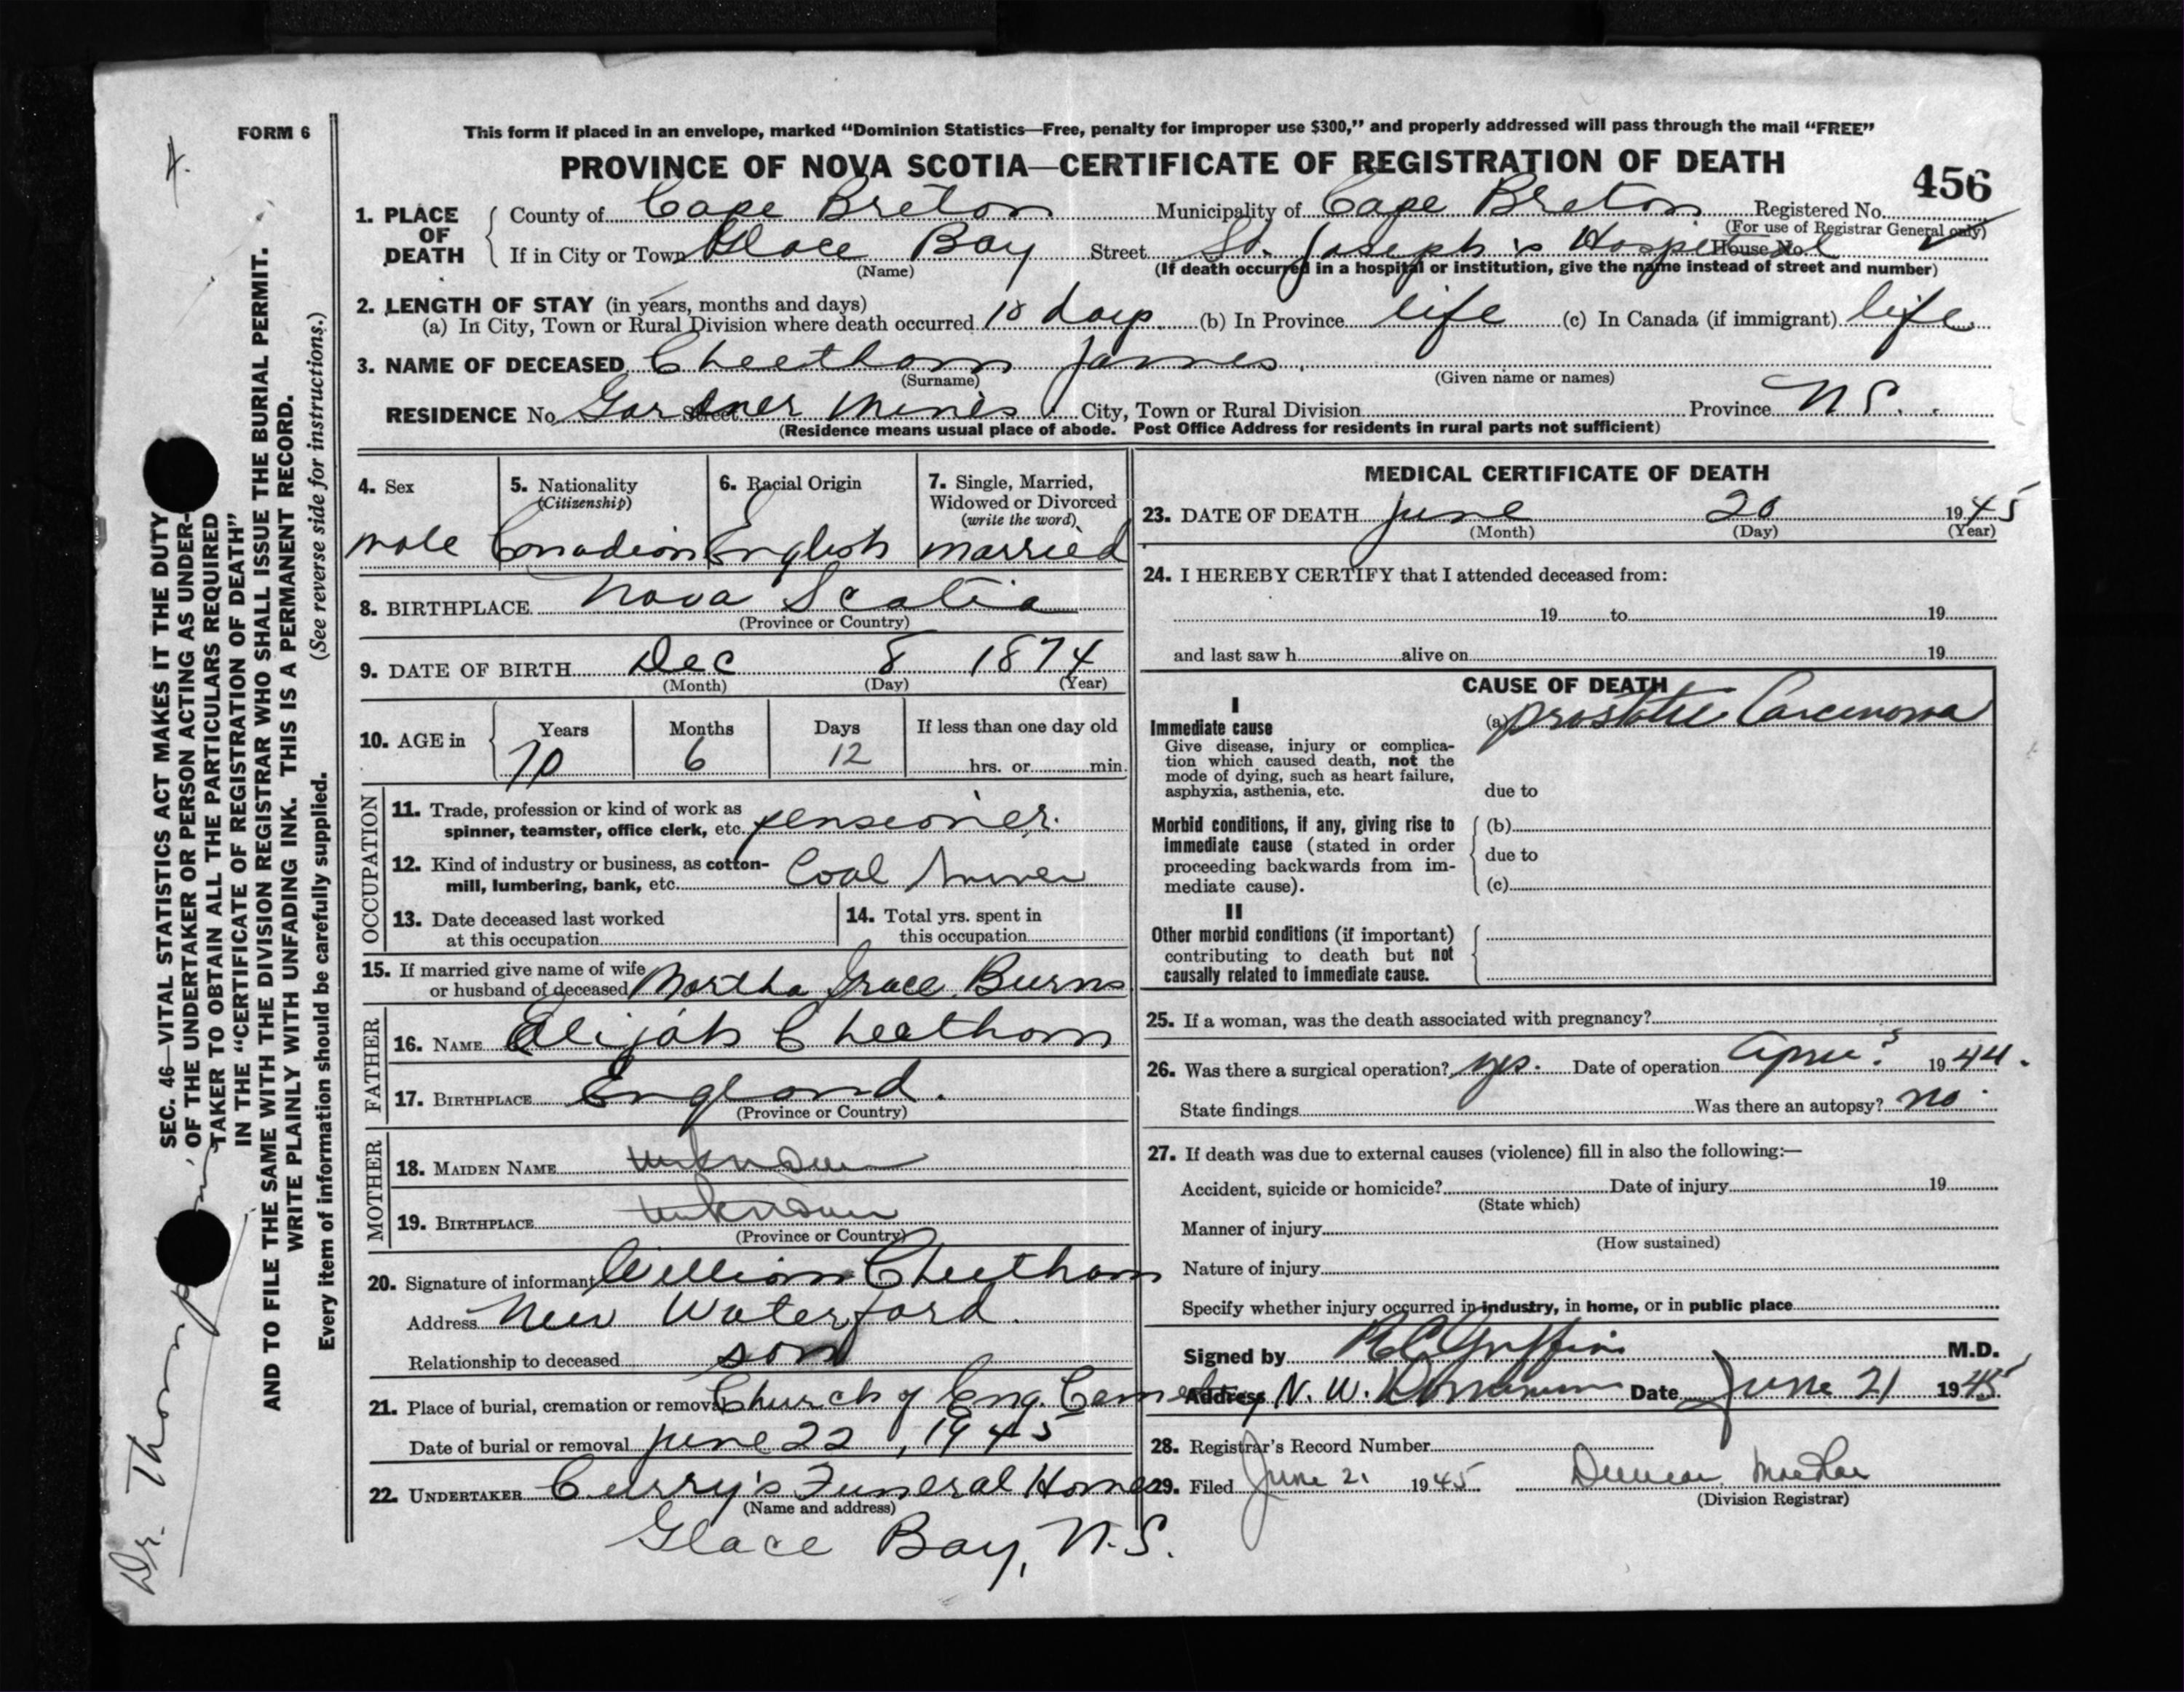 FORM 6
This form if placed in an envelope, marked “Dominion Statistics—Free, penalty for improper use $300,” and properly addressed will pass through the mail “FREE”
PROVINCE OF NOVA SCOTIA—CERTIFICATE OF REGISTRATION OF DEATH
456
1. PLACE OF DEATH
County of Cape Breton Municipality of Cape Breton Registered No.
(For use of Registrar General only)
If in City or Town Glace Bay Street St. Joseph's Hospital House No.
(Name)
(If death occurred in a hospital or institution, give the name instead of street and number)
2. LENGTH OF STAY (in years, months and days)
(a) In City, Town or Rural Division where death occurred 18 days (b) In Province life (c) In Canada (if immigrant) life
3. NAME OF DECEASED Cheetham James
(Surname) (Given name or names)
RESIDENCE No. Gardner Mines Street City, Town or Rural Division Province N.S.
(Residence means usual place of abode. Post Office Address for residents in rural parts not sufficient)
4. Sex
male
5. Nationality
(Citizenship)
Canadian
6. Racial Origin
English
7. Single, Married,
Widowed or Divorced
(write the word)
married
8. BIRTHPLACE Nova Scotia
(Province or Country)
9. DATE OF BIRTH Dec 8 1874
(Month) (Day) (Year)
10. AGE in
Years Months Days If less than one day old
70 6 12 hrs. or min.
OCCUPATION
11. Trade, profession or kind of work as
spinner, teamster, office clerk, etc. pensioner.
12. Kind of industry or business, as cotton-
mill, lumbering, bank, etc. Coal Miner
13. Date deceased last worked
at this occupation
14. Total yrs. spent in
this occupation
15. If married give name of wife
or husband of deceased Martha Grace Burns
FATHER
16. NAME Elijah Cheetham
17. BIRTHPLACE England.
(Province or Country)
MOTHER
18. MAIDEN NAME unknown
19. BIRTHPLACE unknown
(Province or Country)
20. Signature of informant William Cheetham
Address New Waterford.
Relationship to deceased son
21. Place of burial, cremation or removal Church of Eng. Cemetery
Date of burial or removal June 22, 1945
22. UNDERTAKER Curry's Funeral Home
(Name and address)
Glace Bay, N.S.
MEDICAL CERTIFICATE OF DEATH
23. DATE OF DEATH June 20 1945
(Month) (Day) (Year)
24. I HEREBY CERTIFY that I attended deceased from:
19 to 19
and last saw h alive on 19
CAUSE OF DEATH
I
Immediate cause (a) prostatic Carcinoma
Give disease, injury or complica-
tion which caused death, not the
mode of dying, such as heart failure,
asphyxia, asthenia, etc.
due to
Morbid conditions, if any, giving rise to
immediate cause (stated in order
proceeding backwards from im-
mediate cause).
(b)
due to
(c)
II
Other morbid conditions (if important)
contributing to death but not
causally related to immediate cause.
25. If a woman, was the death associated with pregnancy?
26. Was there a surgical operation? yes. Date of operation April ? 1944.
State findings Was there an autopsy? no
27. If death was due to external causes (violence) fill in also the following:—
Accident, suicide or homicide? Date of injury 19
(State which)
Manner of injury
(How sustained)
Nature of injury
Specify whether injury occurred in industry, in home, or in public place
Signed by Griffin M.D.
Address N. W. Date June 21 1945
28. Registrar's Record Number
29. Filed June 21 1945 Duncan MacRae
(Division Registrar)
SEC. 46—VITAL STATISTICS ACT MAKES IT THE DUTY
OF THE UNDERTAKER OR PERSON ACTING AS UNDER-
TAKER TO OBTAIN ALL THE PARTICULARS REQUIRED
IN THE “CERTIFICATE OF REGISTRATION OF DEATH”
AND TO FILE THE SAME WITH THE DIVISION REGISTRAR WHO SHALL ISSUE THE BURIAL PERMIT.
WRITE PLAINLY WITH UNFADING INK. THIS IS A PERMANENT RECORD.
Every item of information should be carefully supplied. (See reverse side for instructions.)
Dr. Thompson